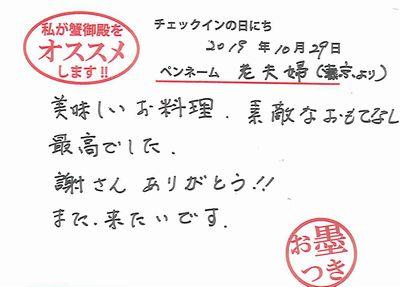 私が蟹御殿を
オススメ
します!!
チェックインの日にち
2019 年 10月 29日
ペンネーム 老夫婦(東京より)
美味しいお料理、素敵なおもてなし
最高でした、
謝さん ありがとう!!
また、来たいです。
お墨
つき